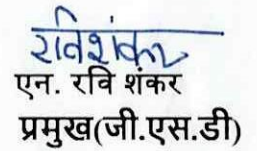 रविशंकर
एन. रवि शंकर
प्रमुख(जी.एस.डी)